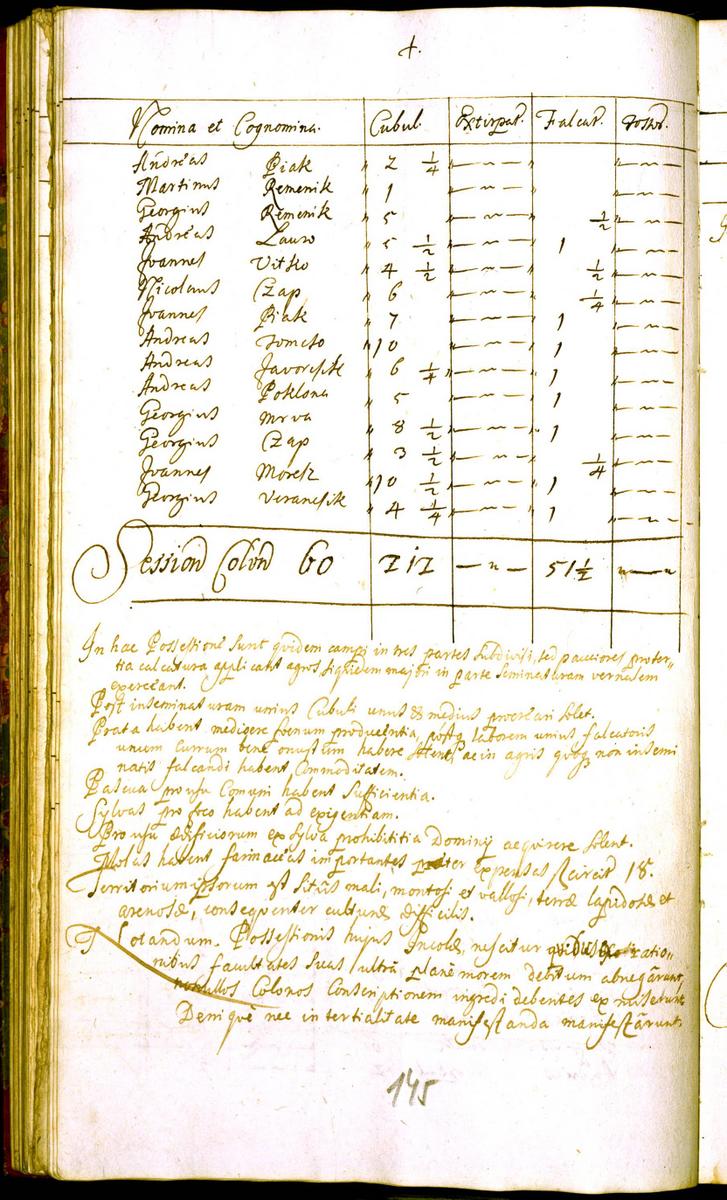 4.
Nomina et Cognomina. Cubul. Extirpat. Falcat. Fossor.
Andreas Piak " 2 1/4 " — " — "
Martinus Remenik " 1
Georgius Remenik " 5 " — " — 1/2 " — " —
Andreas Lauro " 5 1/2 " — " — " 1 " — " —
Joannes Vitko " 4 1/2 " — " — " 1/2 " — " —
Nicolaus Czap " 6 " — " — " 1/4 " — " —
Joannes Piak " 7 " — " — " 1 " — " —
Andreas Tomcso " 10 " — " — " 1 " — " —
Andreas Javorcsik " 6 1/4 " — " — " 1 " — " —
Andreas Poklsna " 5 " — " — " 1 " — " —
Georgius Mrva " 8 1/2 " — " — " 1 " — " —
Georgius Czap " 3 1/2 " — " — " 1/4 " — " —
Joannes Moresz " 10 1/2 " — " — " 1 " — " —
Georgius Verancsik " 4 1/4 " — " — " 1 " — " —
Session Colon 60 212 — " — 51 1/2 " — " —
In hac Possessione sunt quidem campi in tres partes subdivisi, sed pauciores pro ter-
tia calcatura applicatis agros siquidem majori in parte seminaturam vernalem
exerceant.
Post inseminaturam unius Cubuli unus et medius procreari solet.
Prata habent mediocre foenum producentia, postq laborem unius falcatoris
unum currum bene onustum habere solent, ac in agris quoq non insemi
natis falcandi habent Commoditatem.
Pascua pro usu Comuni habent sufficientia.
Sylvas pro foco habent ad exigentiam.
Pro usu ædificiorum ex sylva prohibititia Dominij acquirere solent.
Molas habent farinaceas importantes præter expensas circit 18.
Territorium ipsorum est sitûs mali, montosi et vallosi, terræ lapidosæ et
arenosæ, consequenter culturæ difficilis.
Notandum. Possessionis hujus Incolæ, nescitur quibus ratio-
nibus facultates suas ultra planè morem debitum abnegârunt,
nonnullos Colonos Conscriptionem ingredi debentes exmiserunt
Deniquè nec in tertialitate manifestanda manifestârunt
145